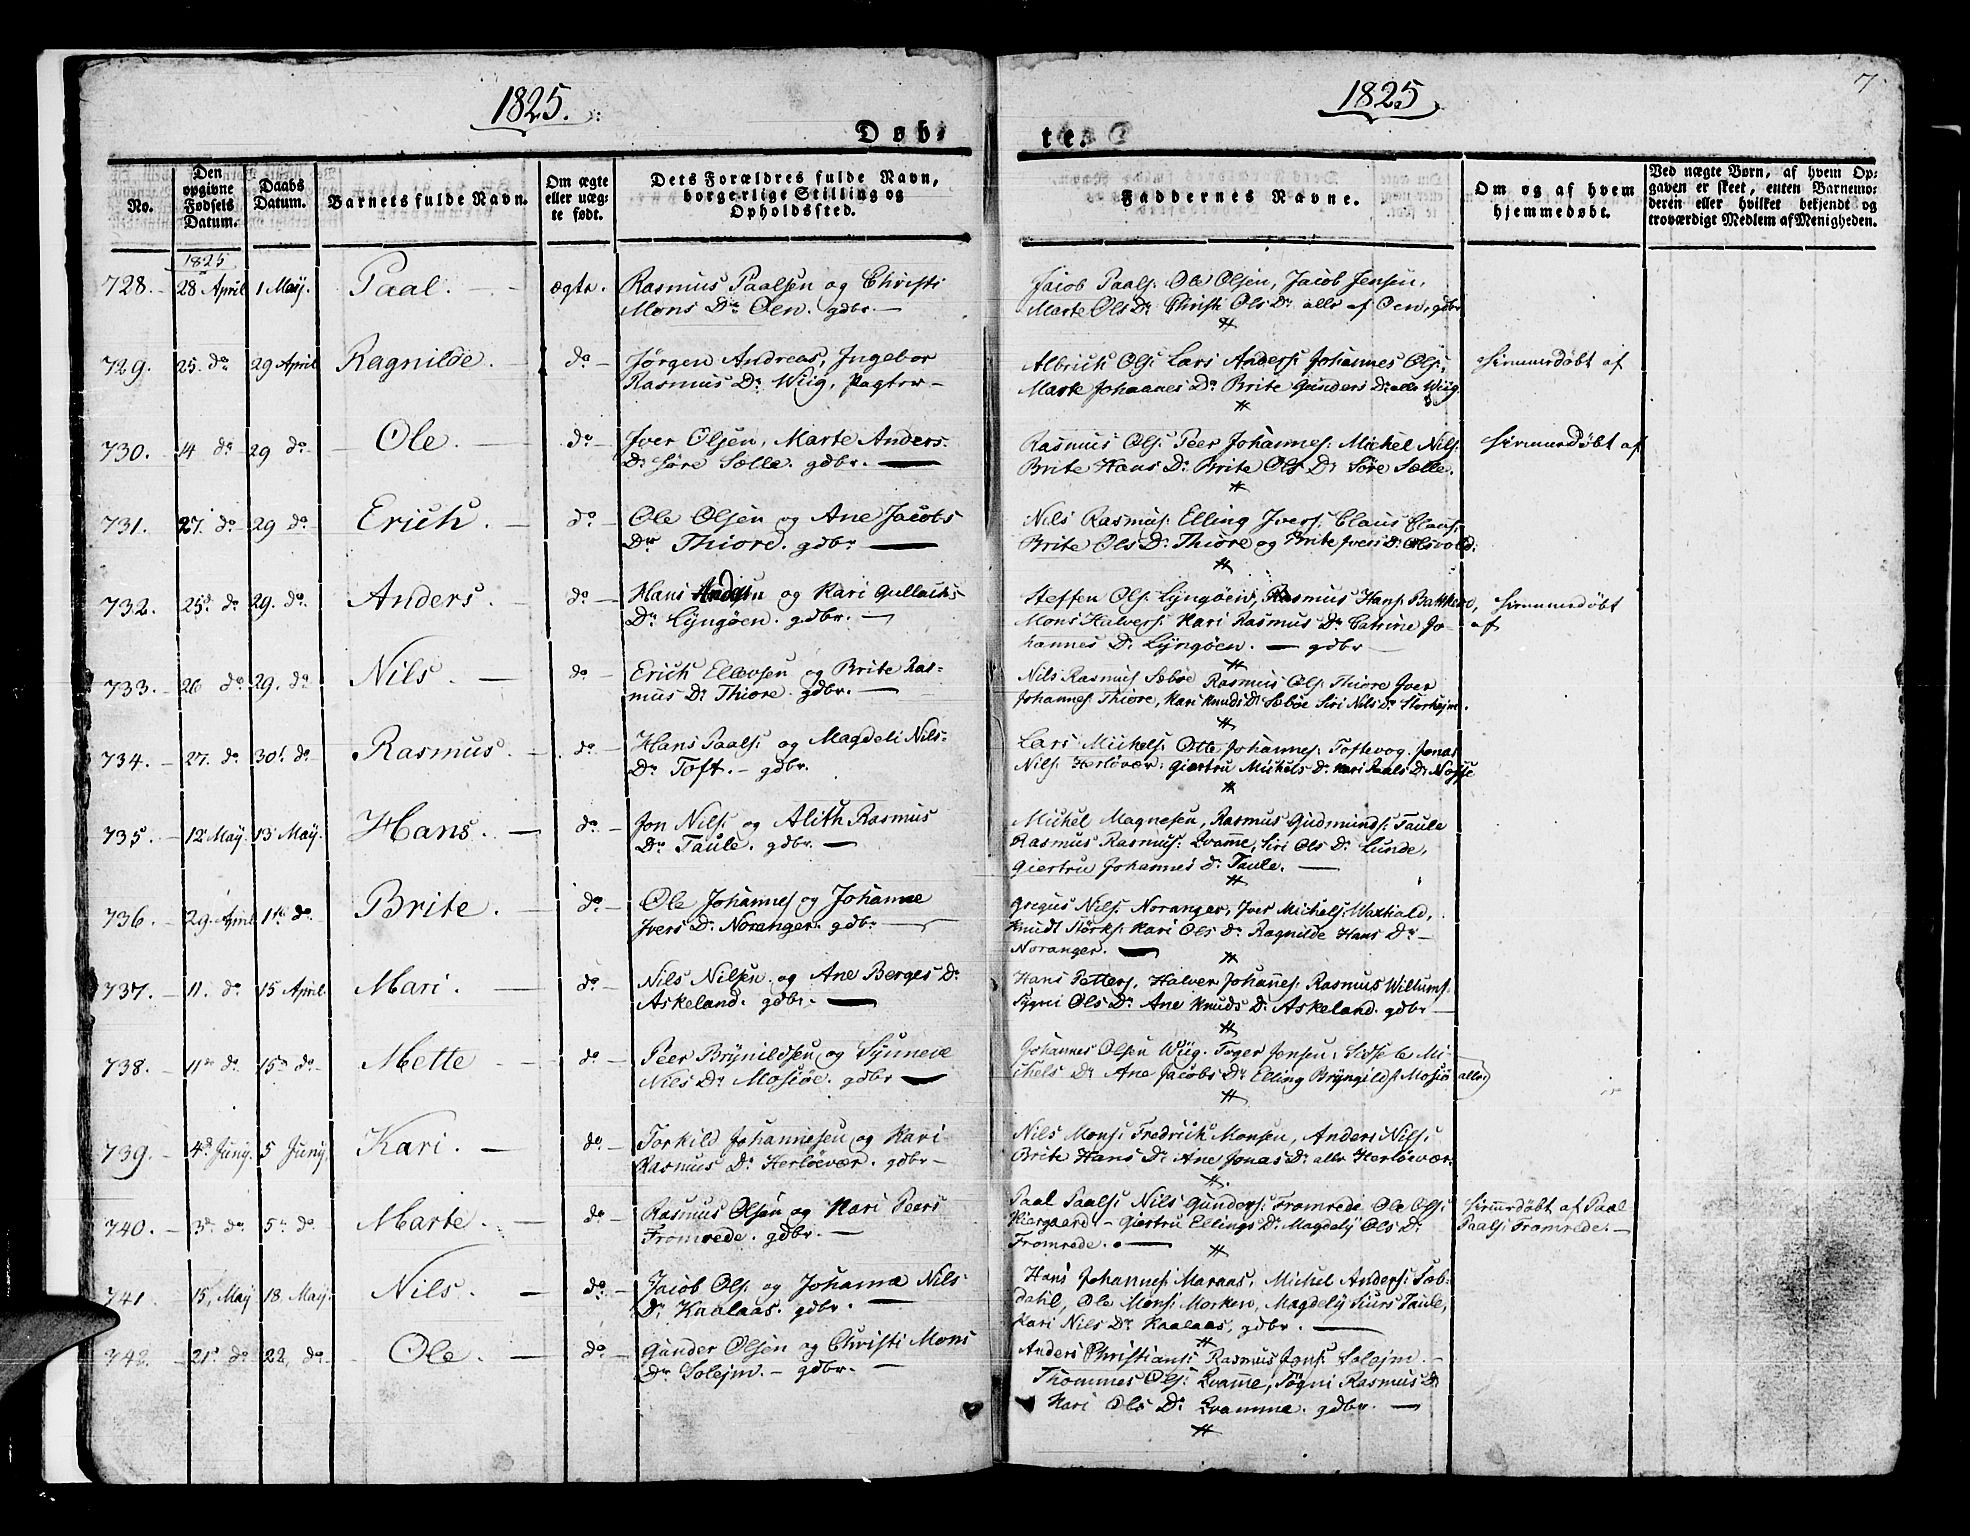 1825.
1825.
7
Døb-
te.
No.
Den opgivne Fødsels Datum.
Daabs Datum.
Barnets fulde Navn.
Om ægte eller uægte født.
Dets Forældres fulde Navn, borgerlige Stilling og Opholdssted.
Faddernes Navne.
Om og af hvem hjemmedøbt.
Ved uægte Børn, af hvem Opgaven er skeet, enten Barnemoderen eller hvilket bekjendt og troværdigt Medlem af Menigheden.
1825
728. 28 April 1 Maÿ. Paal. ægte. Rasmus Paalsen og Christi
Mons Dr Øen. gdbr.
Jacob Paals: Ole Olsen, Jacob Jensen,
Marte Ols Dr Christi Ols Dr alle af Øen, gdbr
729. 25. do 29 April Ragnilde. do Jørgen Andreas, Ingebor
Rasmus Dr Wiig, Pagter
Albrich Ols: Lars Anders: Johannes Ols:
Marte Johannes Dr Brite Gunders Dr alle Wiig
Hiemmedøbt af
730. 14 do 29 do Ole. do Iver Olsen, Marte Anders
Dr Søre Sælle. gdbr.
Rasmus Ols: Peer Johannes: Michel Nils:
Brite Hans Dr Brite Ols Dr Søre Sælle.
Hiemmedøbt af
731. 27. do 29 do Erich. do Ole Olsen og Ane Jacobs
Dr Thiore. gdbr
Nils Rasmus: Elling Ivers: Claus Claus:
Brite Ols Dr Thiore og Brite Ivers Dr Olsvold.
732. 25d do 29. do Anders. do Hans Andersen og Kari Gullachs
Dr Lÿngøen. gdbr.
Steffen Ols: Lÿngøen, Rasmus Hans: Bakken,
Mons Halvers: Kari Rasmus Dr Catrine Jo-
hannes Dr Lÿngøen. gdbr
Hiemmedøbt
af
733. 26 do 29. do Nils. do Erich Ellevsen og Brite Ras-
mus Dr Thiore. gdbr.
Nils Rasmus Sæbøe Rasmus Ols: Thiore Iver
Johannes: Thiore, Kari Knuds Dr Sæbøe Siri Nils Dr Storhejm.
734. 27. do 30. do Rasmus. do Hans Paals: og Magdeli Nils-
Dr Toft. gdbr.
Lars Michels: Otte Johannes: Toftevog. Jonas
Nils: Herløevær. Giertru Michels Dr Kari Paals Dr
735. 12 Maÿ. 13 Maÿ. Hans. do Jon Nils: og Alith Rasmus
Dr Taule. gdbr.
Michel Magnesen, Rasmus Gudmunds: Taule
Rasmus Rasmus: Qvamme, Siri Ols Dr Lunde,
Giertru Johannes Dr Taule.
736. 29. April do. Brite. do Ole Johannes og Johanne
Ivers Dr Noranger. gdbr
Gregus Nils: Noranger, Iver Michels:
Knudt Størks: Kari Ols Dr Ragnilde Hans Dr
Noranger.
737. 11. do 15 April. Mari. do Nils Nilsen og Ane Berges Dr
Askeland. gdbr.
Hans Petters, Halver Johanes: Rasmus Willums:
Sygni Ols Dr Ane Knuds Dr Askeland. gdbr
738. 11te do 15de do. Mette do Peer Brÿnildsen og Sÿnneve
Nils Dr Mosiøe. gdbr
Johannes Olsen Wiig. Toger Jensen, Mi-
chels Dr Ane Jacobs Dr Elling Brÿngilds: Mosiø alle
739. 4de Junÿ. 5 Junÿ. Kari. do Torkild Johannesen og Kari
Rasmus Dr Herløevær. gdbr
Nils Mons: Fredrich Monsen, Anders Nils:
Brite Hans Dr Ane Jonas Dr alle Herløevær.
740. 3. do 5. do. Marte. do Rasmus Olsen og Kari Peers
Fromrede. gdbr.
Paal Paals: Nils Gunders: Fromrede Ole Ols:
Kiergaard Giertru Ellings Dr Magdelÿ Ols Dr
Fromrede.
Hiemmedøbt af Paal
Paals: Fromrede.
741. 15. Maÿ 18. Maÿ. Nils. do Jacob Ols: og Johanne Nils
Dr Kaalaas. gdbr.
Hans Johannes: Maraas, Michel Anders: Sæb-
dahl, Ole Mons: Morken, Magdelÿ Siurs Taule,
Kari Nils Dr Kaalaas, gdbr.
742. 21. do 22. do. Ole. do Gunder Olsen og Christi Mons
Dr Solejm. gdbr.
Anders Christians: Rasmus Jons: Solejm.
Thommes Ols: Qvamme, Søgni Rasmus Dr
Kari Ols Dr Qvamme. gdbr.